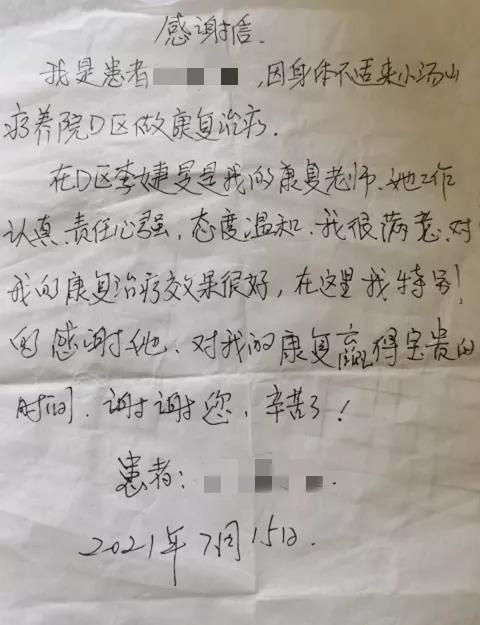 感谢信.
我是患者 ,因身体不适来小汤山
疗养院D区做康复治疗.
在D区李婕曼是我的康复老师.她工作
认真.责任心强,态度温和.我很满意.对
我的康复治疗效果很好,在这里我特别
的感谢她、对我的康复赢得宝贵的
时间.谢谢您,辛苦了!
患者: .
2021年7月15日.